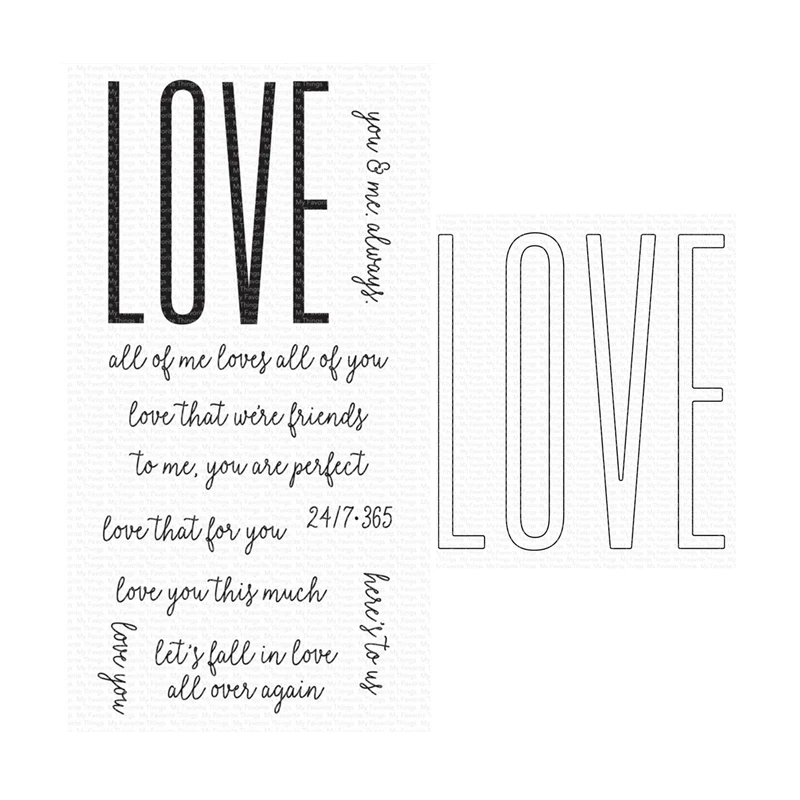 LOVE
you & me. always.
all of me loves all of you
love that we're friends
to me, you are perfect
24/7•365
love that for you
love you this much
here's to us
love you
let's fall in love
all over again
LOVE
My Favorite Things